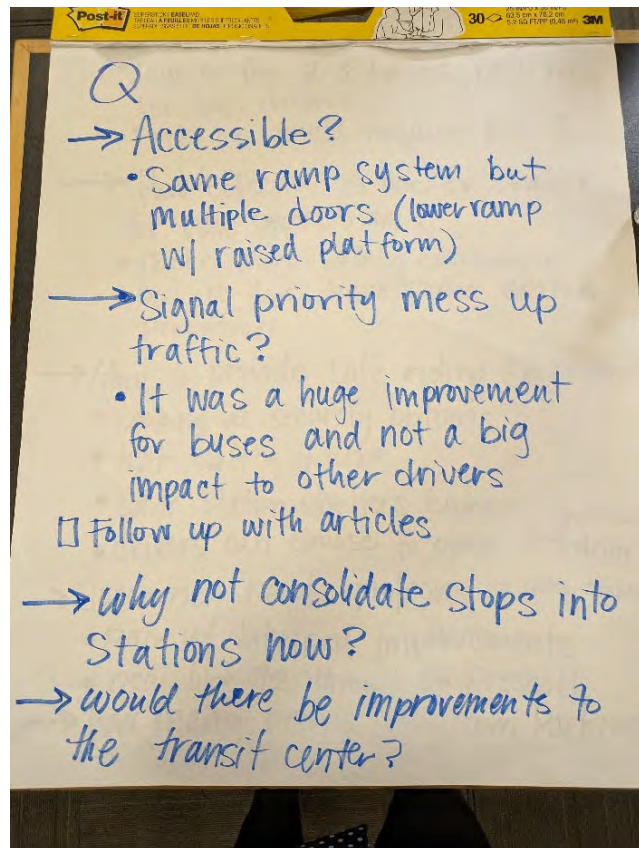 Post-it
30
3M
Q
→ Accessible?
• Same ramp system but
multiple doors (lower ramp
w/ raised platform)
→ Signal priority mess up
traffic?
• It was a huge improvement
for buses and not a big
impact to other drivers
☐ Follow up with articles
→ why not consolidate stops into
Stations now?
→ would there be improvements to
the transit center?